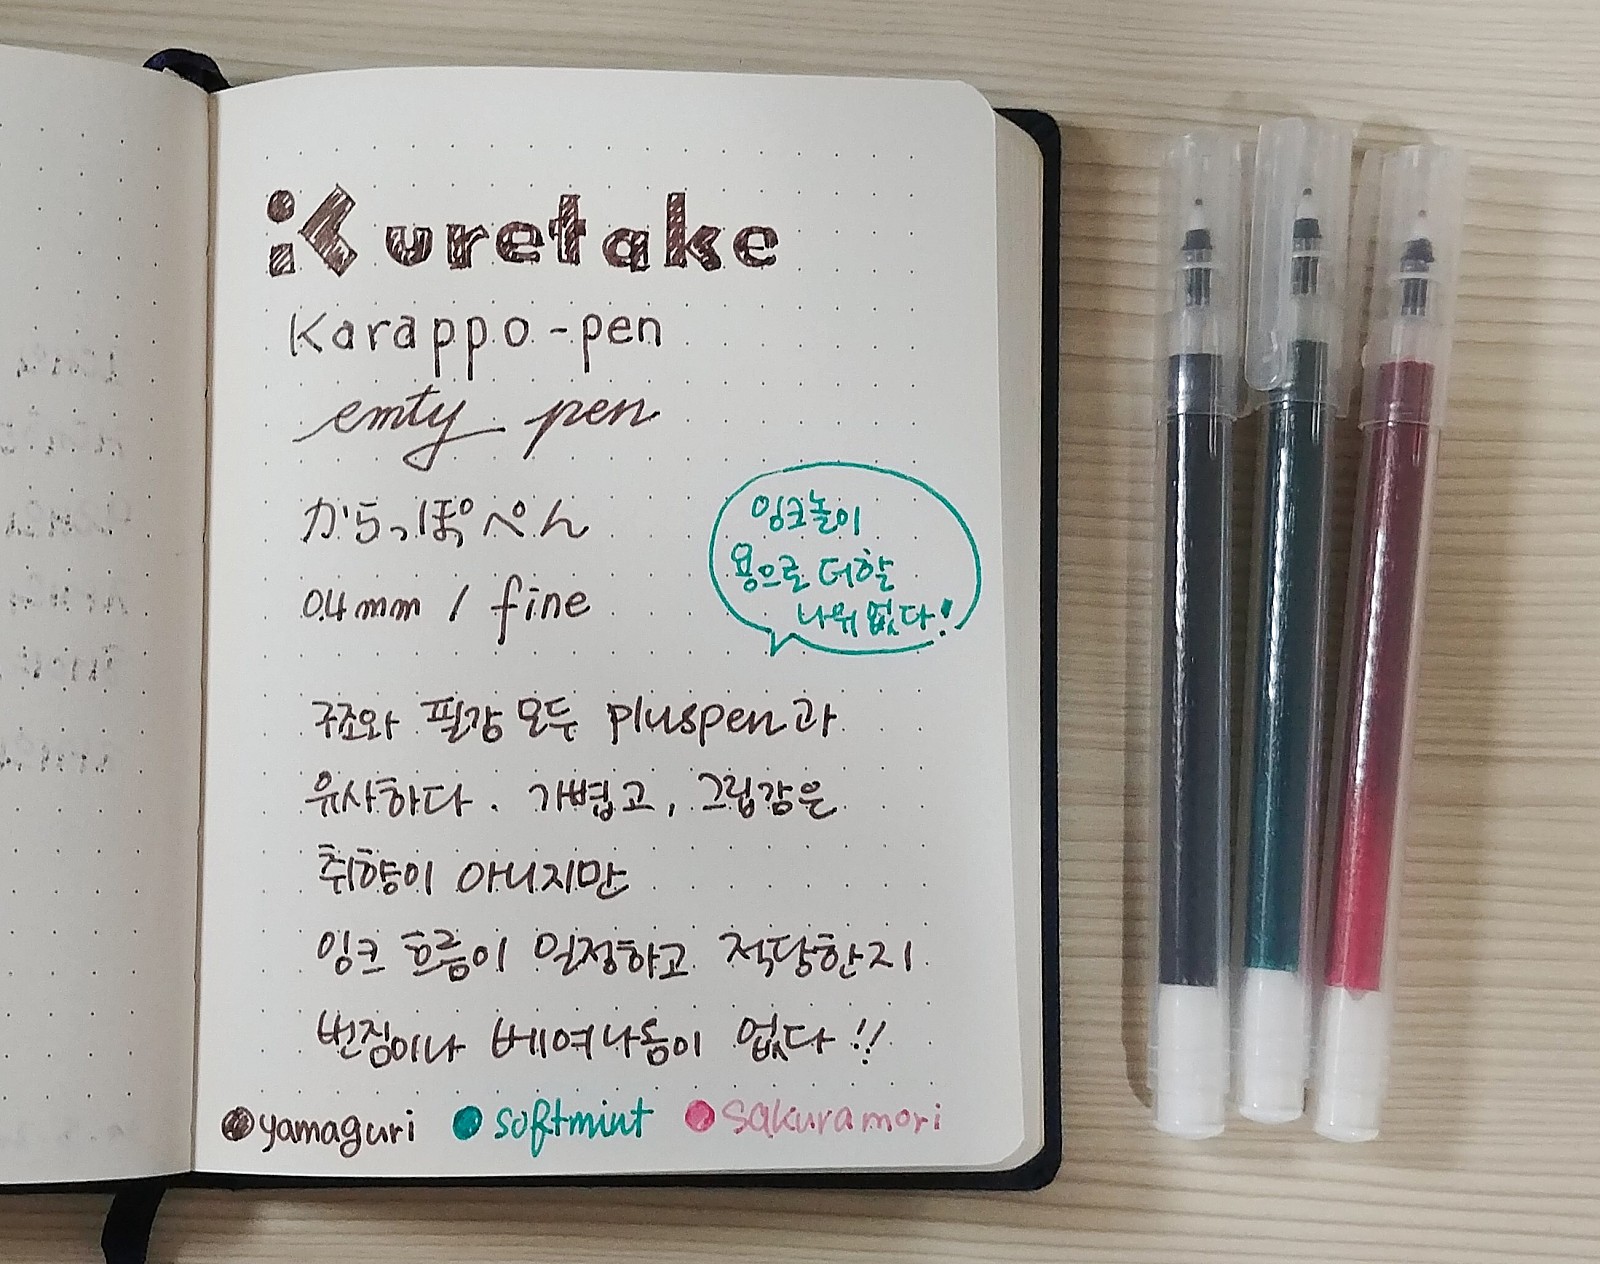 Kuretake
Karappo-pen
emty pen
からっぽぺん
0.4mm / fine
잉크놀이
용으로 더할
나위 없다!
구조와 필감 모두 pluspen과
유사하다. 가볍고, 그립감은
취향이 아니지만
잉크 흐름이 일정하고 적당한지
번짐이나 베여나옴이 없다!!
yamaguri softmint sakuramori